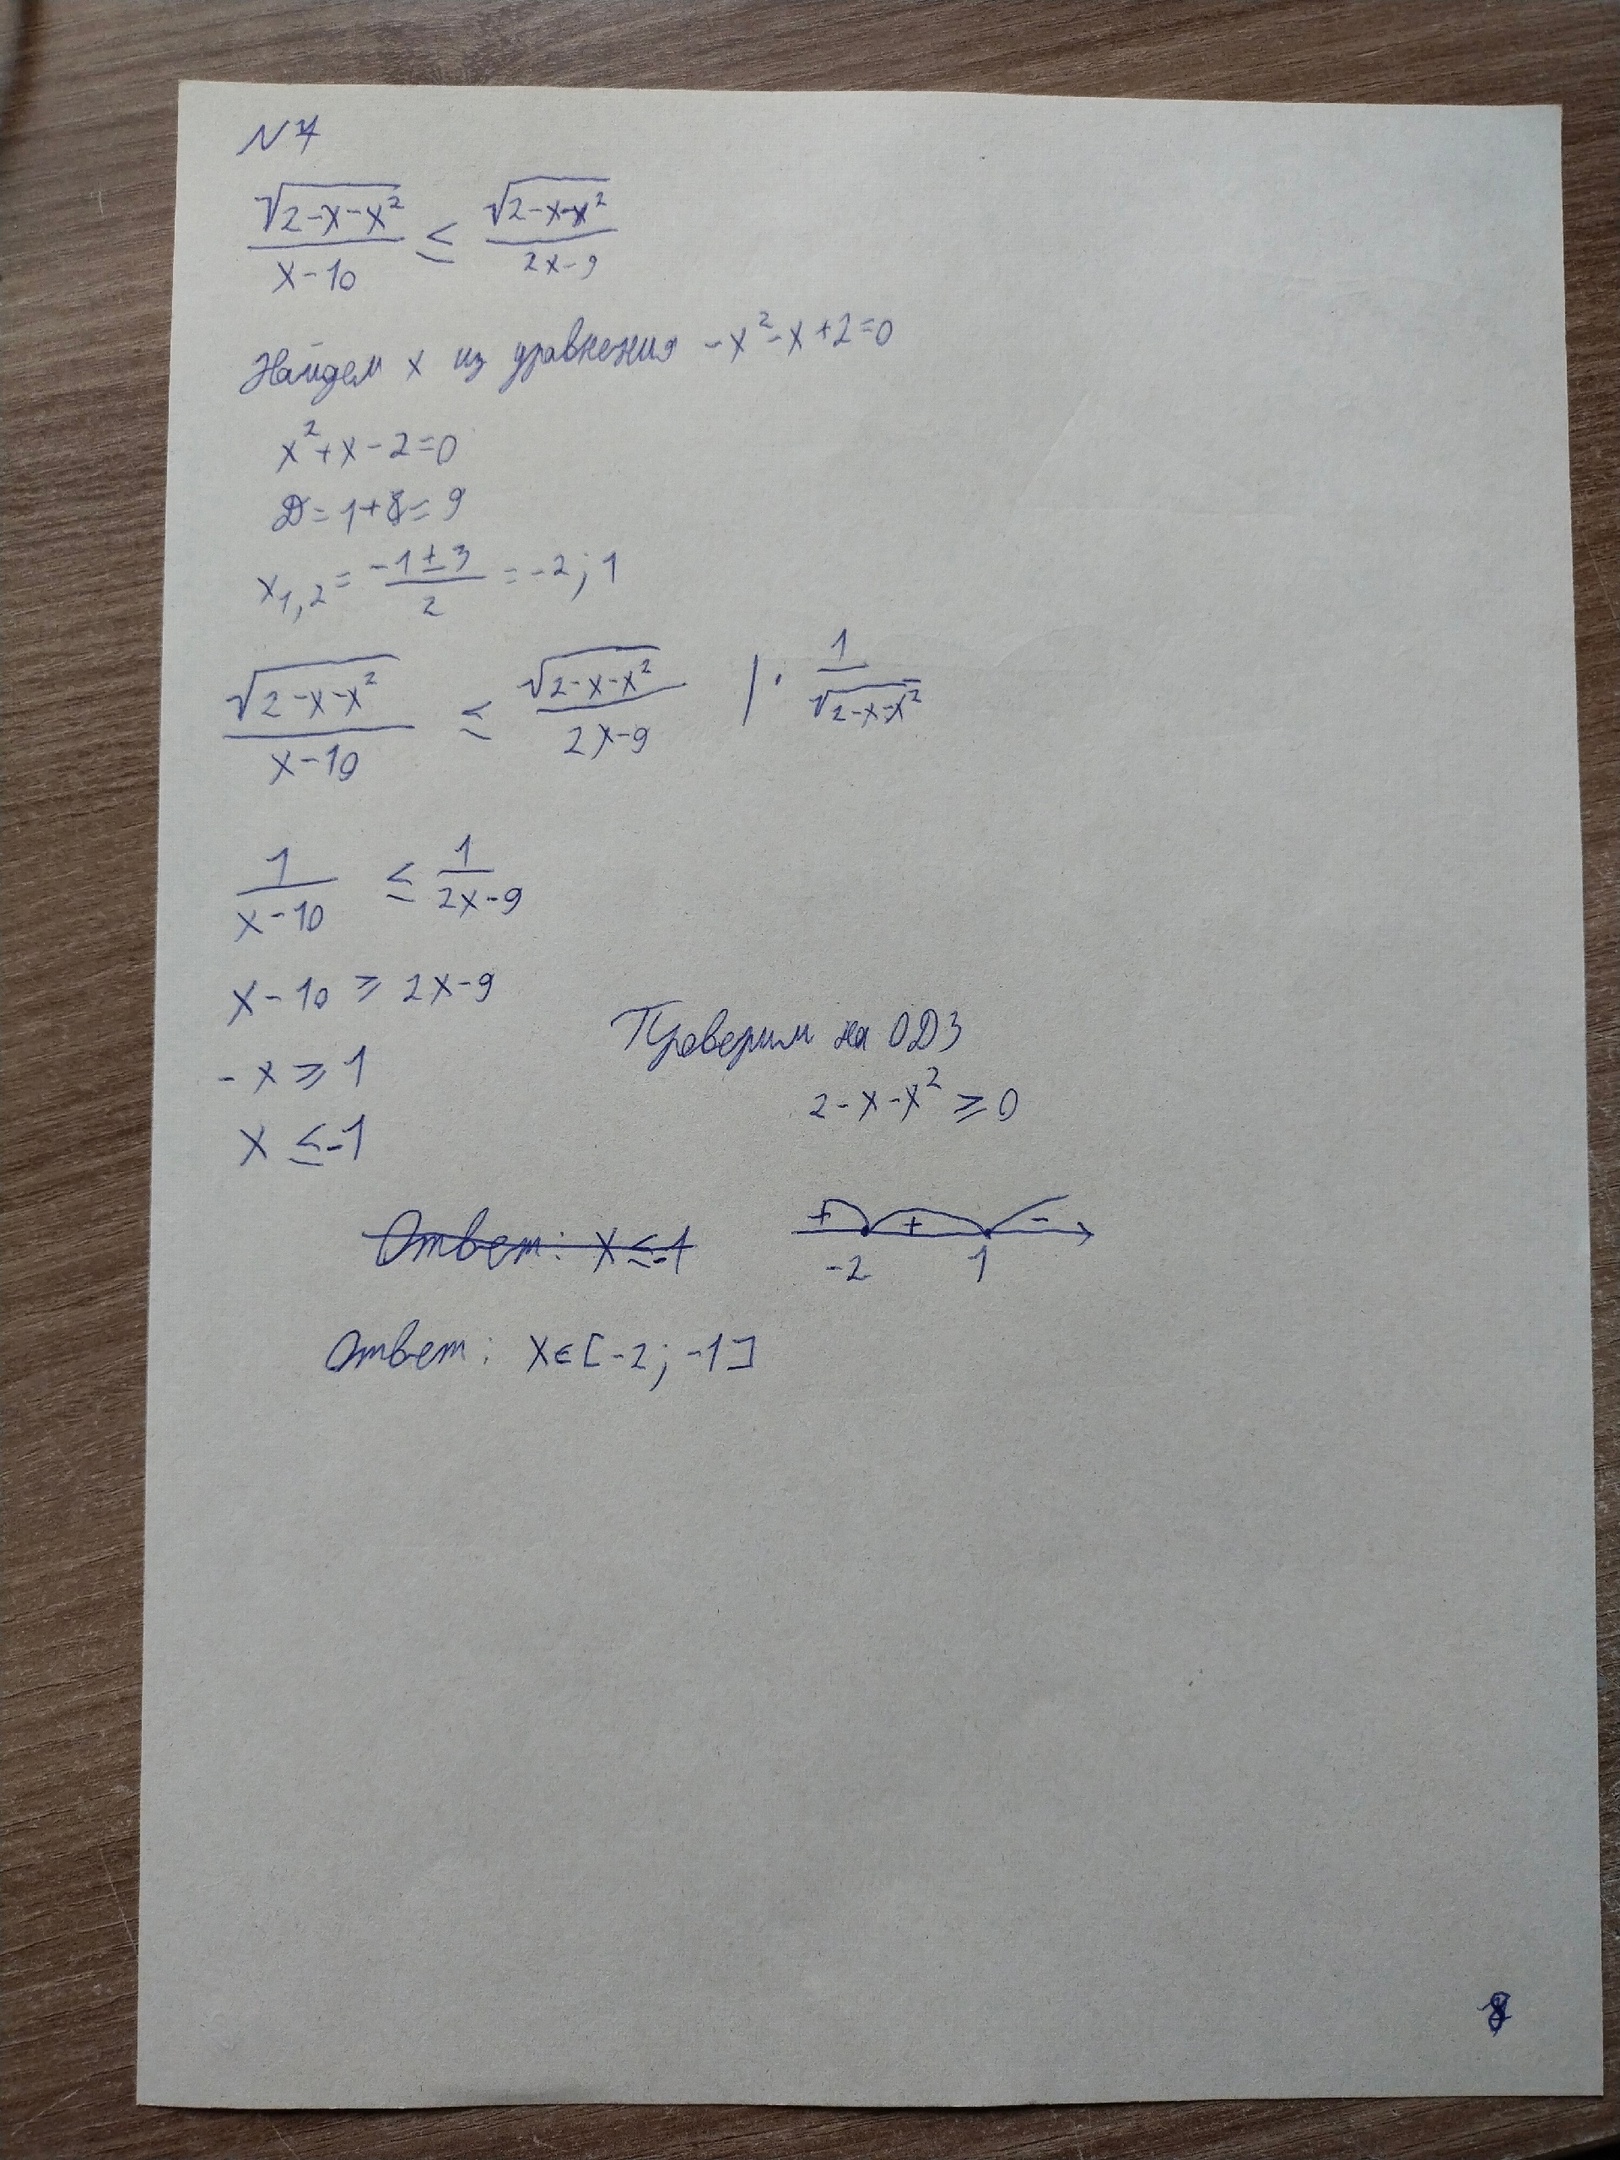 N 7
√(2-x-x²)/(x-10) ≤ √(2-x-x²)/(2x-9)
Найдем x из уравнения -x²-x+2=0
x²+x-2=0
D=1+8=9
x1,2 = (-1±3)/2 = -2; 1
√(2-x-x²)/(x-10) ≤ √(2-x-x²)/(2x-9) | · 1/√(2-x-x²)
1/(x-10) ≤ 1/(2x-9)
x-10 ≥ 2x-9
-x ≥ 1
x ≤ -1
Проверим на ОДЗ
2-x-x² ≥ 0
+ + -
-2 1
Ответ: x ≤ -1
Ответ: x∈[-2; -1]